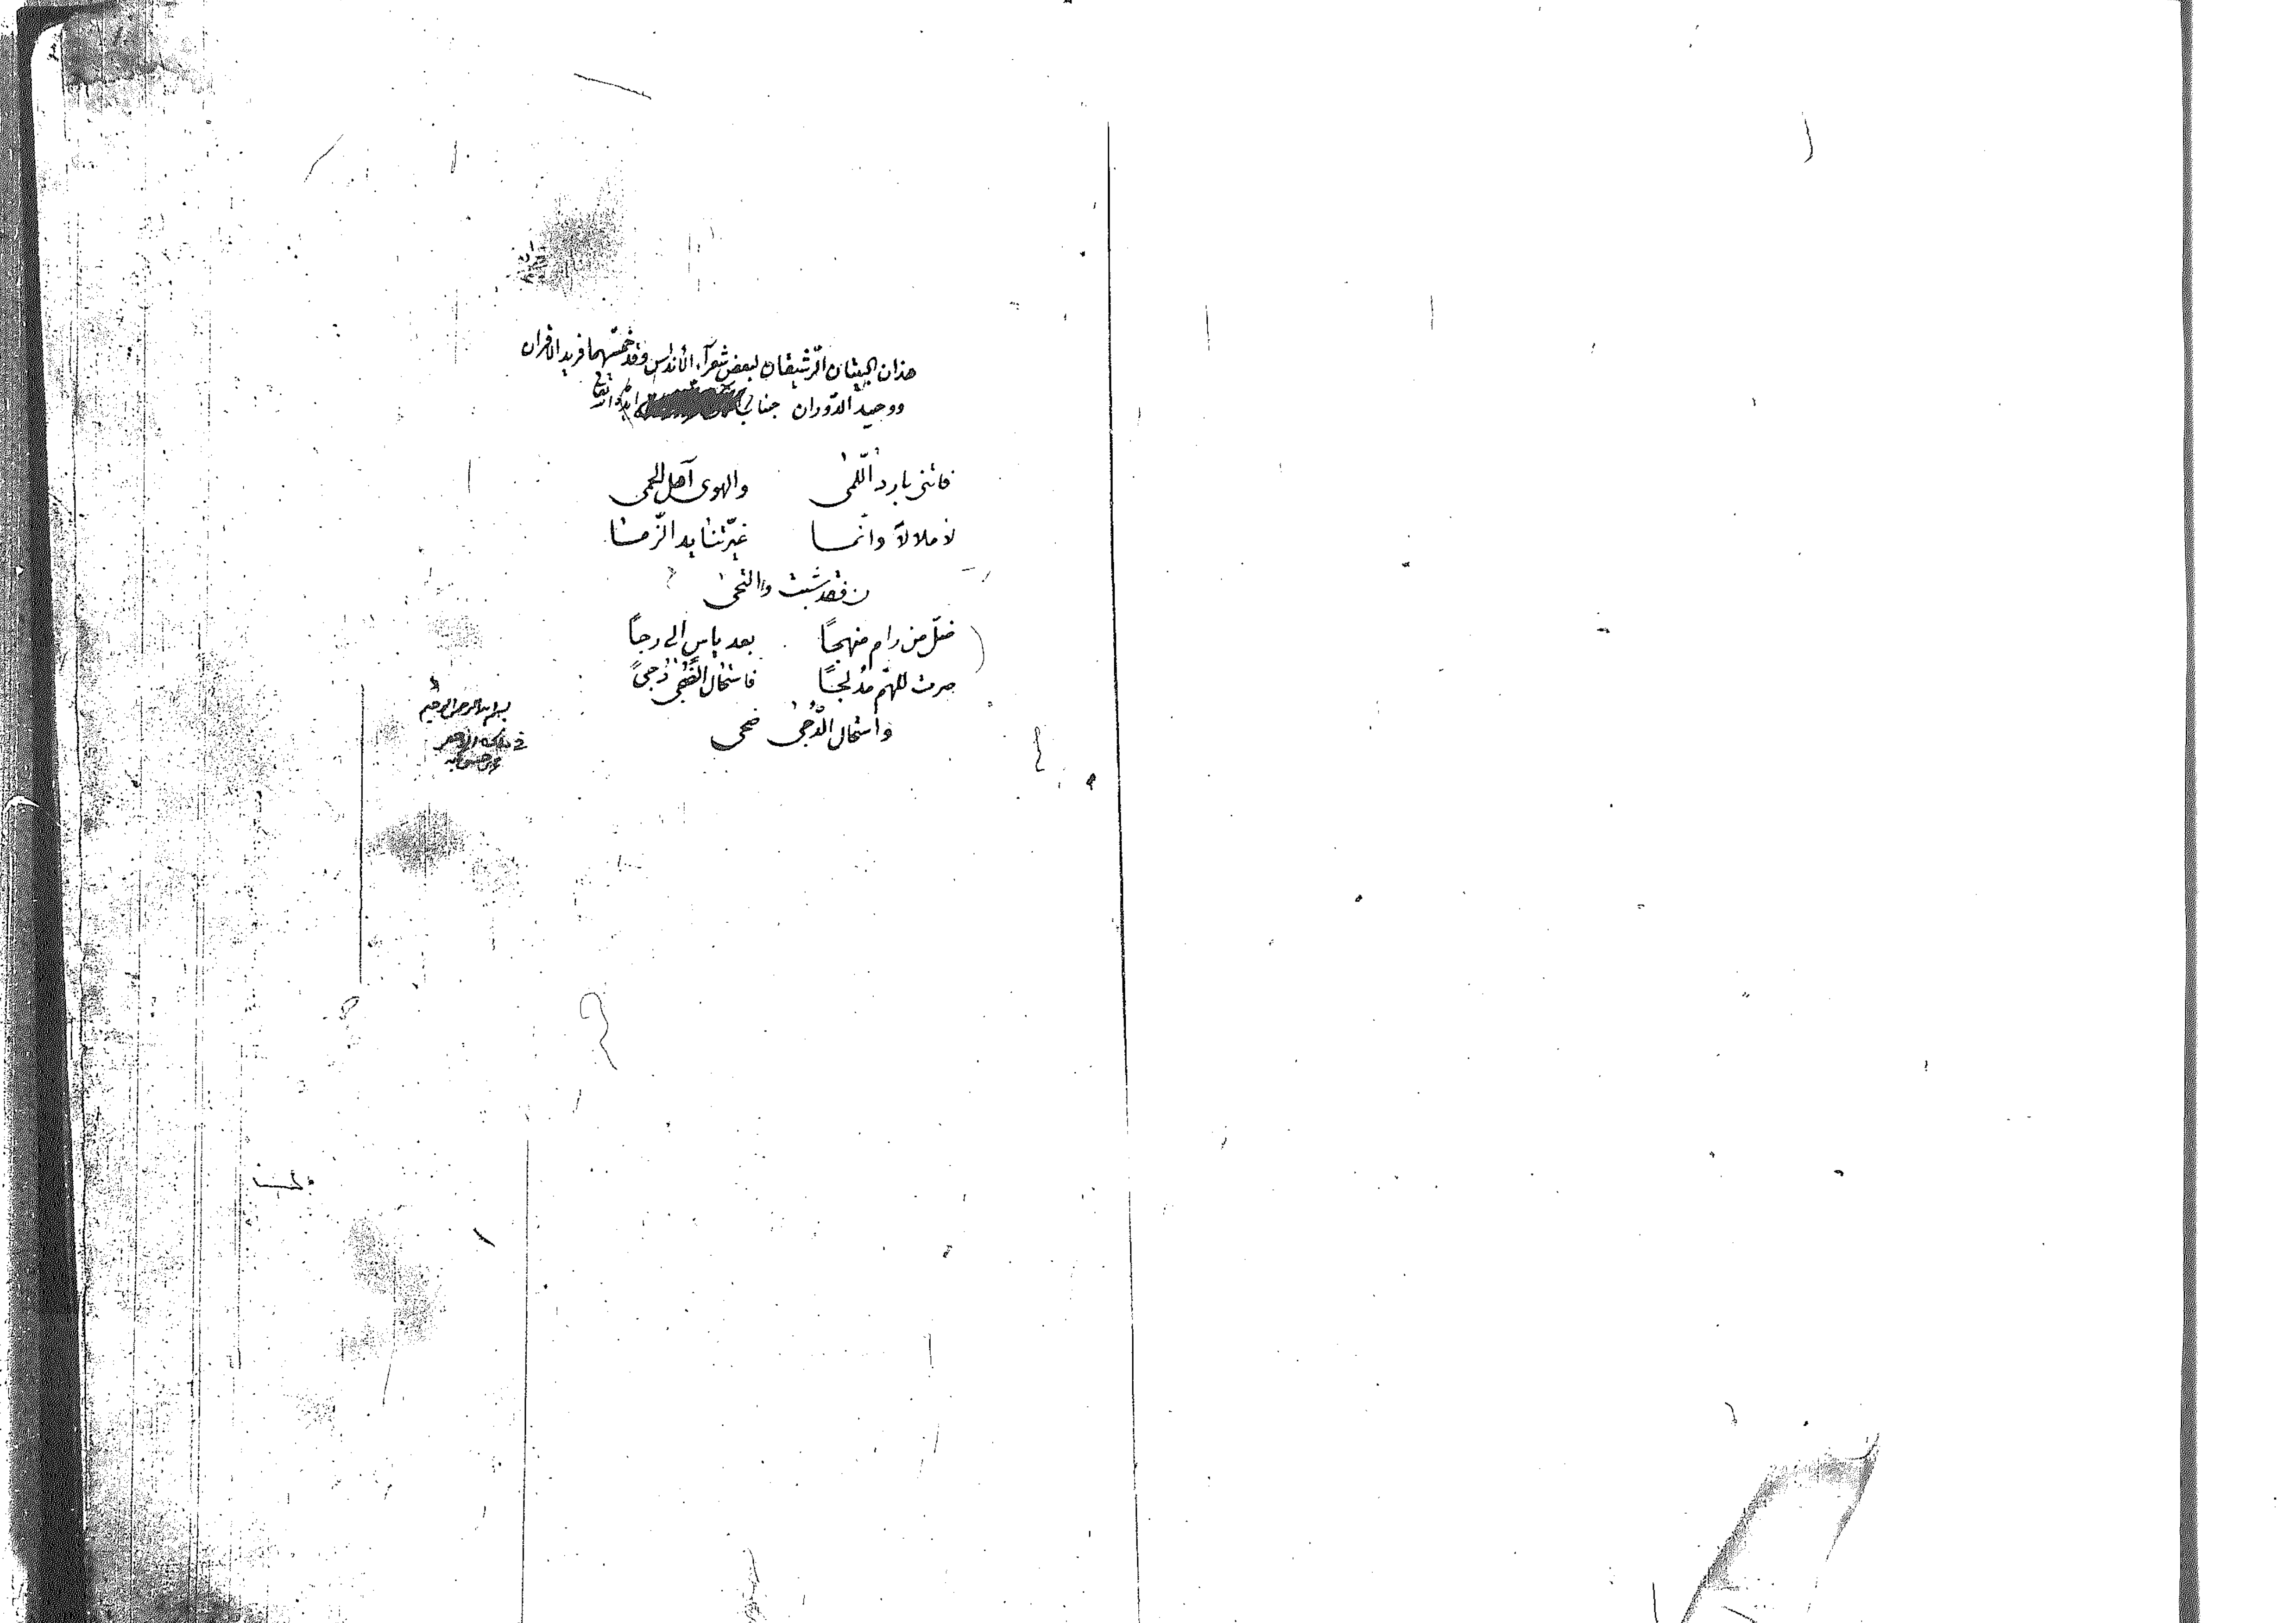 هذان البيتان الرّشيقان لبعض شعرآء الأندلس وقد خمّسهما فريد الاقران
ووحيد الدّوران جناب
فاتنى بارد اللّمى والهوى آهل الحمى
لا ملالاً وانّمـا غيّرتنا يد الزّمـا
ن فقد شبت والتحى
ضلّ من رام منهجاً بعد ياسٍ الى رجاً
صرت للهمّ مُدلجاً فاستحال الضّحى دُجىً
واستحال الدّجى ضحى
بسم الله الرحمن الرحيم